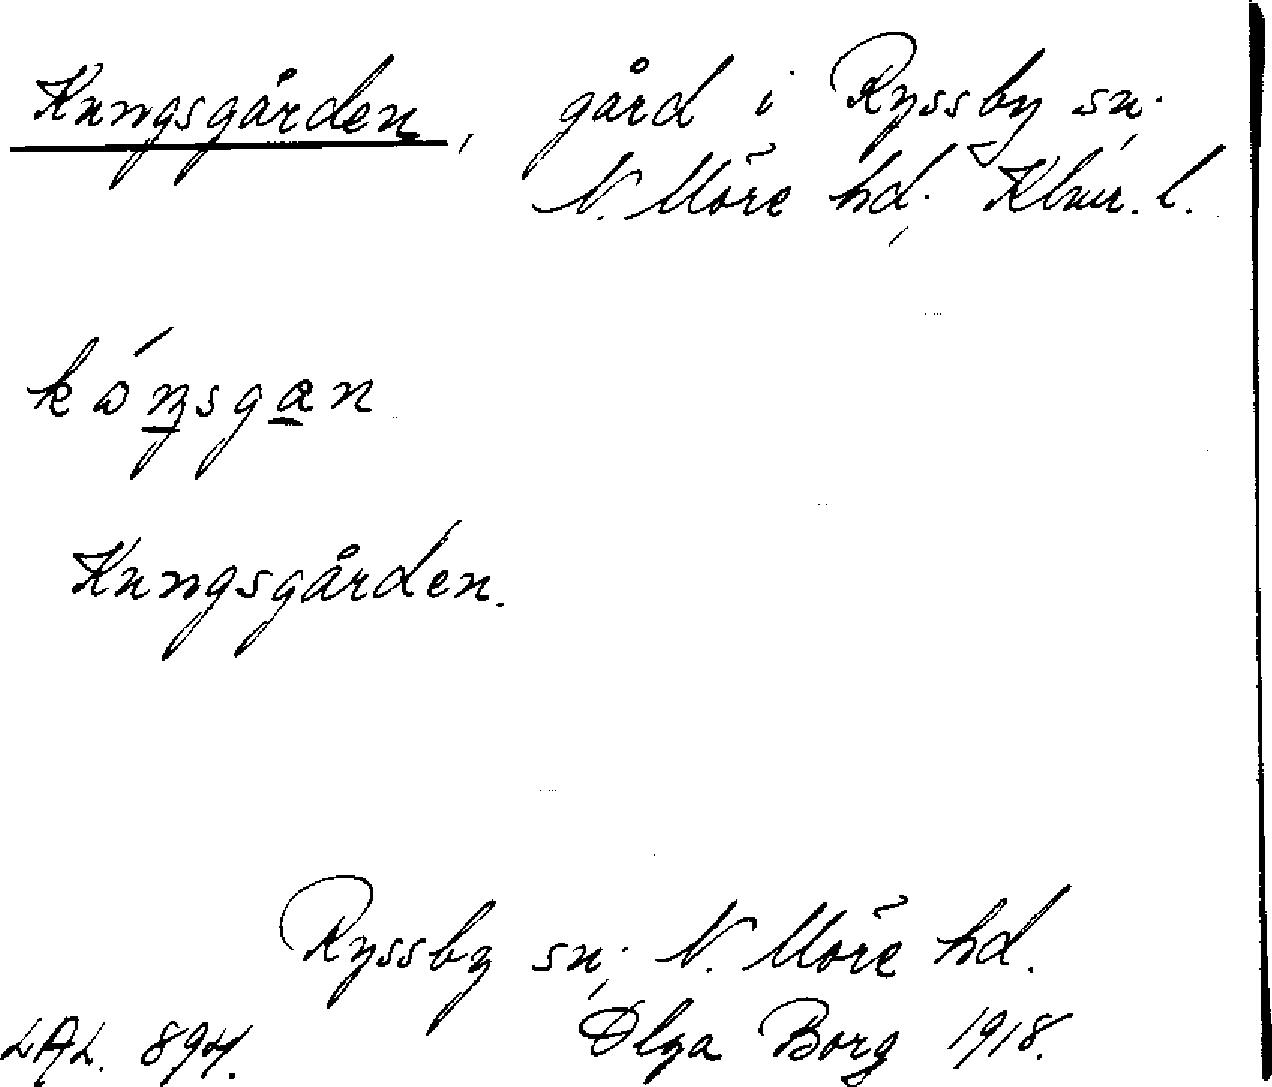 Kungsgården, gård i Ryssby sn;
N. Möre hd; Klmr. l.
kóŋsgan
Kungsgården.
Ryssby sn; N. Möre hd.
LAL. 894. Olga Borg 1918.